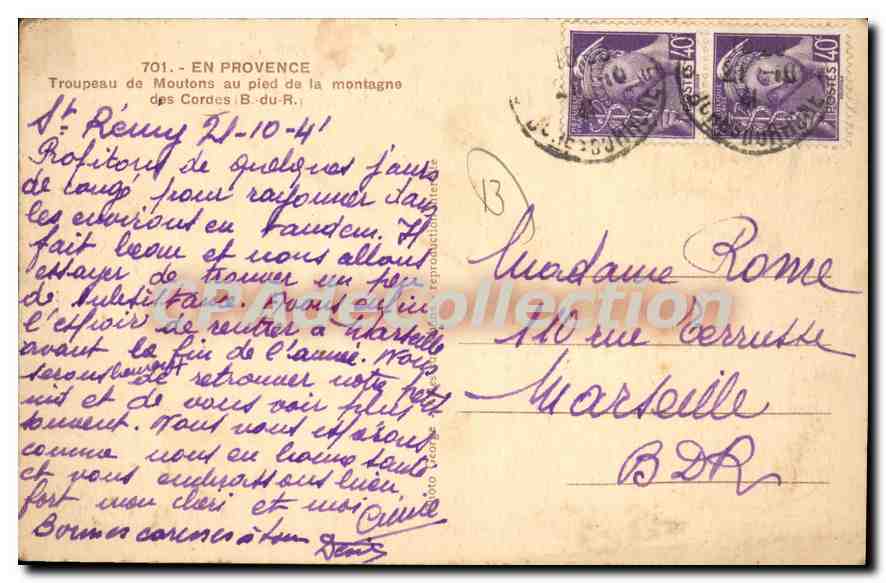 701. - EN PROVENCE
Troupeau de Moutons au pied de la montagne
des Cordes (B.-du-R.)
St Rémy 21-10-41
Profitons de quelques jours
de congé pour rayonner dans
les environs en tandem. Il
fait beau et nous allons
essayer de trouver un peu
de subsistance. Avons enfin
l'espoir de rentrer à Marseille
avant la fin de l'année. Nous
serons de retrouver notre petit
nid et de vous voir plus
souvent. Nous vous espérons
comme nous en bonne santé
et vous embrassons bien
fort mon chéri et moi
Bonnes caresses à tous
Denis
POSTES 40c
POSTES 40c
13
Madame Rome
110 rue Terrusse
Marseille
BDR
Photo George
reproduction interdite
CPA de collection